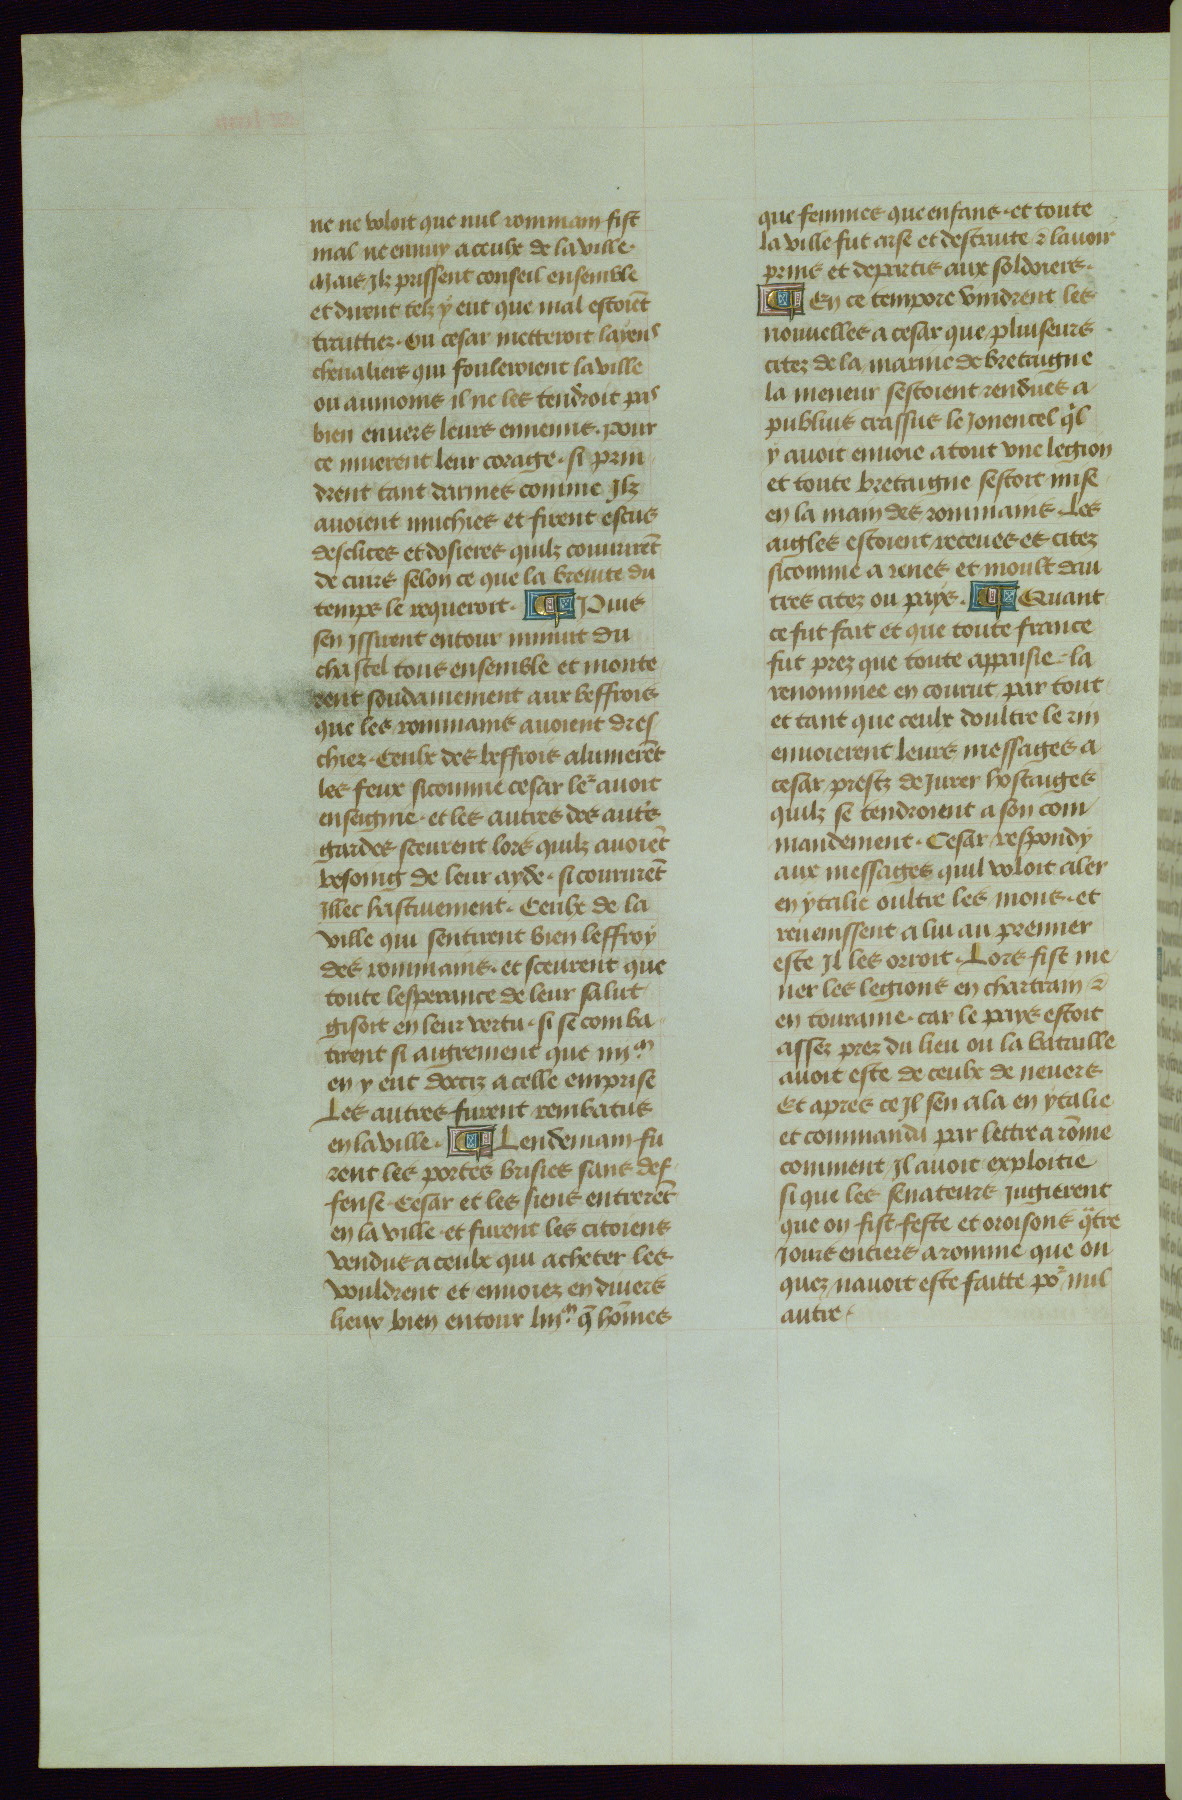 ne ne voloit que nul rommain fist
mal ne ennuy a ceulx de la ville·
Mais Ilz prissent conseil ensemble
et dirent telz y eut que mal estoiẽt
traittiez· ou cesar metteroit layens
cheualiers qui fouleroient la ville
ou aumoins il ne les tendroit pas
bien enuers leurs ennemis· pour
ce muerent leur corage· si prin
drent tant darmes comme Ilz
auoient muchies et firent escus
desclices et dosieres quilz couurirẽt
de cuirs selon ce que la briefte du
temps le requeroit· Puis
sen Issirent entour minuit du
chastel tous ensemble et monte
rent soudainement aux beffrois
que les rommains auoient dres
chiez· Ceulx des beffrois alumerẽt
les feux sicomme cesar leᷣ auoit
enseignie· et les autres des autᷣs
gardes sceurent lors quilz auoiẽt
besoing de leur ayde· si coururẽt
Illec hastiuement· Ceulx de la
ville qui sentirent bien leffroy
des rommains· et sceurent que
toute lesperance de leur salut
gisoit en leur vertu· si se comba
tirent si aigrement que iiijᵐ
en y eut docciz a celle emprise
Les autres furent rembatus
en la ville· Lendemain fu
rent les portes brisies sans def
fense· Cesar et les siens entrerẽt
en la ville· et furent les citoiens
vendus a ceulx qui acheter les
vouldrent et enuoiez en diuers
lieux bien entour liijᵐ· q̃ hõmes
que femmes que enfans· et toute
la ville fut arse et destruite ⁊ lauoir
prins et departis aux soldoiers·
En ce tempore vindrent les
nouuelles a cesar que pluiseurs
citez de la marine de bretaigne
la meneur sestoient rendues a
publius crassus le Jonencel q̃l
y auoit enuoie a tout vne legion
et toute bretaigne sestoit mise
en la main des rommains Les
aigles estoient receues es citez
sicomme a renes et moult dau
tres citez ou pays· Quant
ce fut fait et que toute france
fut prez que toute appaisie· la
renommee en courut par tout
et tant que ceulx doultre le rin
enuoierent leurs messages a
cesar prestz de Jurer hostaiges
quilz se tendroient a son com
mandement· Cesar respondy
aux messages quil voloit aler
en ytalie oultre les mons· et
reuenissent a lui au premier
este Il les orroit· Lors fist me
ner les legions en chartrain ⁊
en touraine· car le pays estoit
assez prez du lieu ou la bataille
auoit este de ceulx de neuers
Et apres ce Il sen ala en ytalie
et commanda par lettre a rõme
comment Il auoit exploitie
si que les senateurs Jugierent
que on fist feste et oroisons q̃tre
Jours entiers a romme que on
quez nauoit este faitte poᷣ nul
autre·